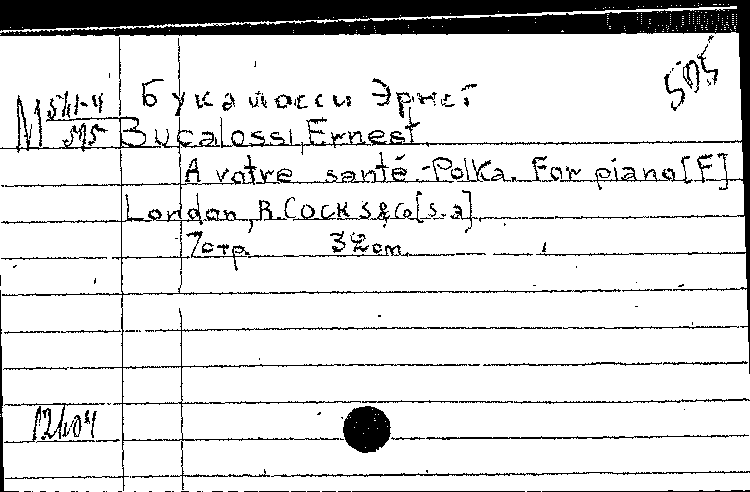 505
Букалосси Эрнст
M
Bucalossi, Ernest.
A votre santé.-Polka. For piano [F]
London, R. Cocks & Co [s.a].
7 стр. 32 cm.